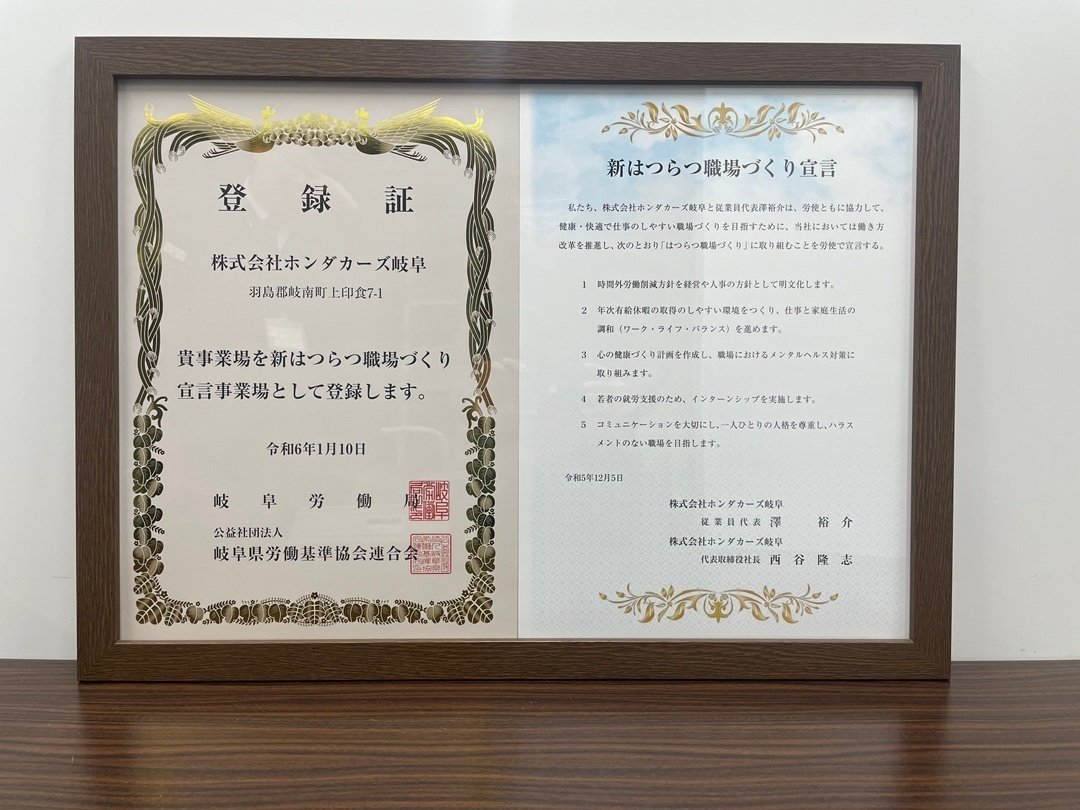 登録証
株式会社ホンダカーズ岐阜
羽島郡岐南町上印食7-1
貴事業場を新はつらつ職場づくり
宣言事業場として登録します。
令和6年1月10日
岐阜労働局
公益社団法人
岐阜県労働基準協会連合会
新はつらつ職場づくり宣言
私たち、株式会社ホンダカーズ岐阜と従業員代表澤裕介は、労使ともに協力して、
健康・快適で仕事のしやすい職場づくりを目指すために、当社においては働き方
改革を推進し、次のとおり「はつらつ職場づくり」に取り組むことを労使で宣言する。
1 時間外労働削減方針を経営や人事の方針として明文化します。
2 年次有給休暇の取得のしやすい環境をつくり、仕事と家庭生活の
調和（ワーク・ライフ・バランス）を進めます。
3 心の健康づくり計画を作成し、職場におけるメンタルヘルス対策に
取り組みます。
4 若者の就労支援のため、インターンシップを実施します。
5 コミュニケーションを大切にし、一人ひとりの人格を尊重し、ハラス
メントのない職場を目指します。
令和5年12月5日
株式会社ホンダカーズ岐阜
従業員代表 澤 裕介
株式会社ホンダカーズ岐阜
代表取締役社長 西谷隆志